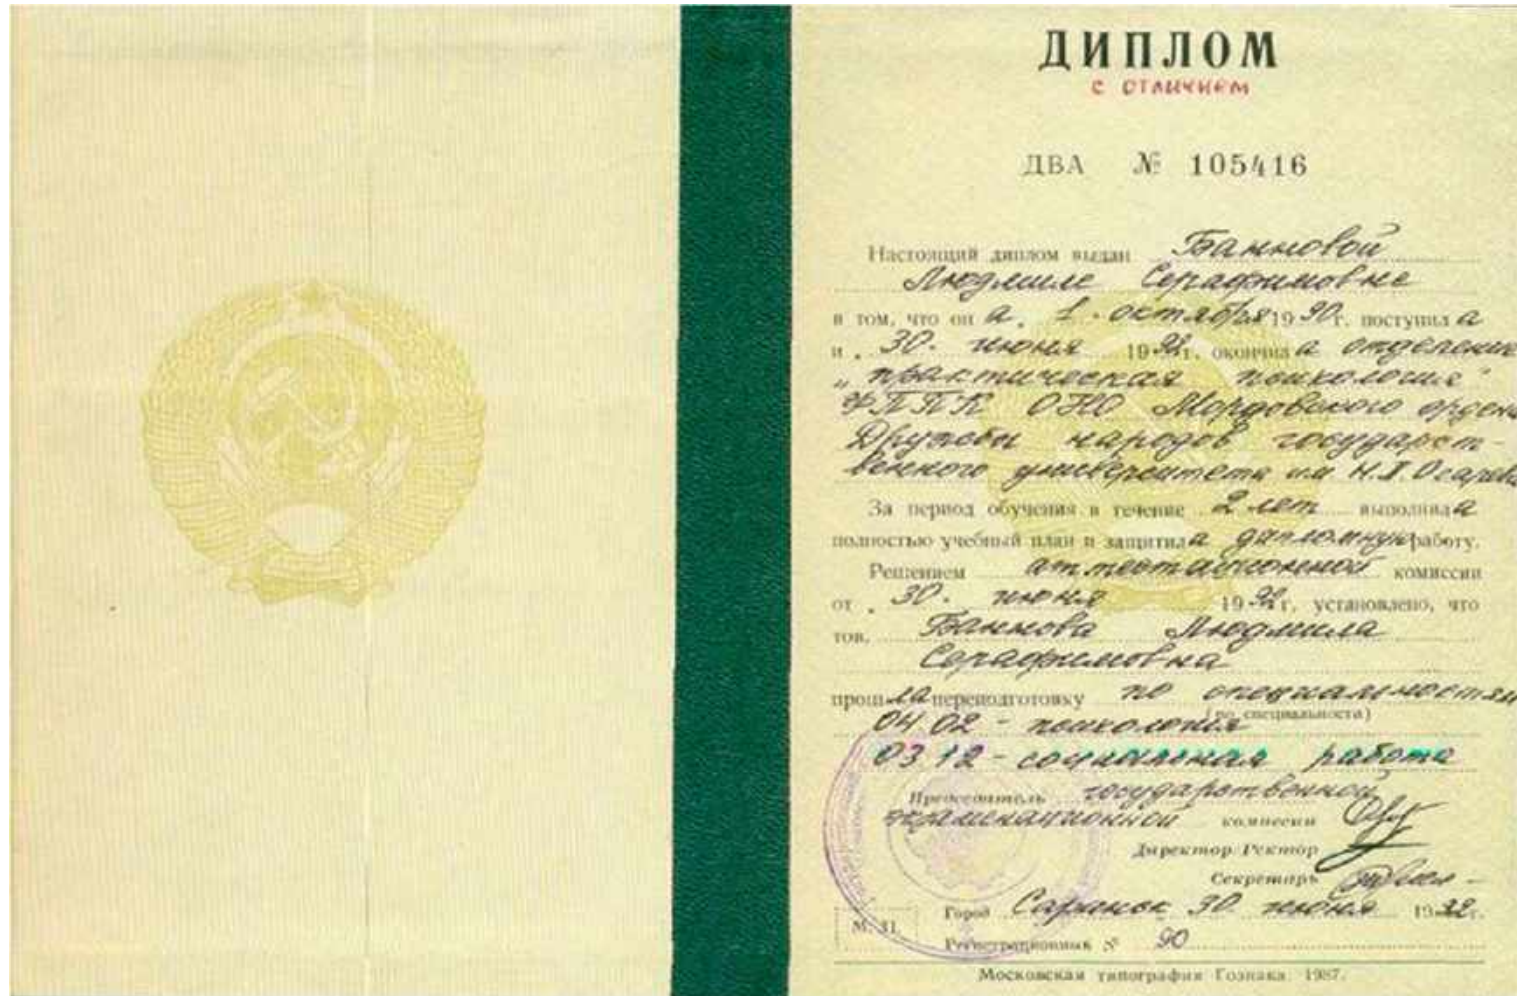 ДИПЛОМ
С ОТЛИЧИЕМ
ДВА № 105416
Настоящий диплом выдан Банновой
Людмиле Серафимовне
в том, что она „1" октября 1990г. поступила
и „30" июня 1992г. окончила отделение
„практическая психология"
ФППК ОНО Мордовского ордена
Дружбы народов государст-
венного университета им. Н.П. Огарева
За период обучения в течение 2 лет выполнила
полностью учебный план и защитила дипломную работу.
Решением аттестационной комиссии
от „30" июня 1992г. установлено, что
тов. Баннова Людмила
Серафимовна
прошла переподготовку по специальностям
(по специальности)
04.02 - психология
03.12 - социальная работа
Председатель государственной
экзаменационной комиссии
Директор/Ректор
Секретарь
Город Саранск 30 июня 1992г.
М. П.
Регистрационный № 90
Московская типография Гознака. 1987.